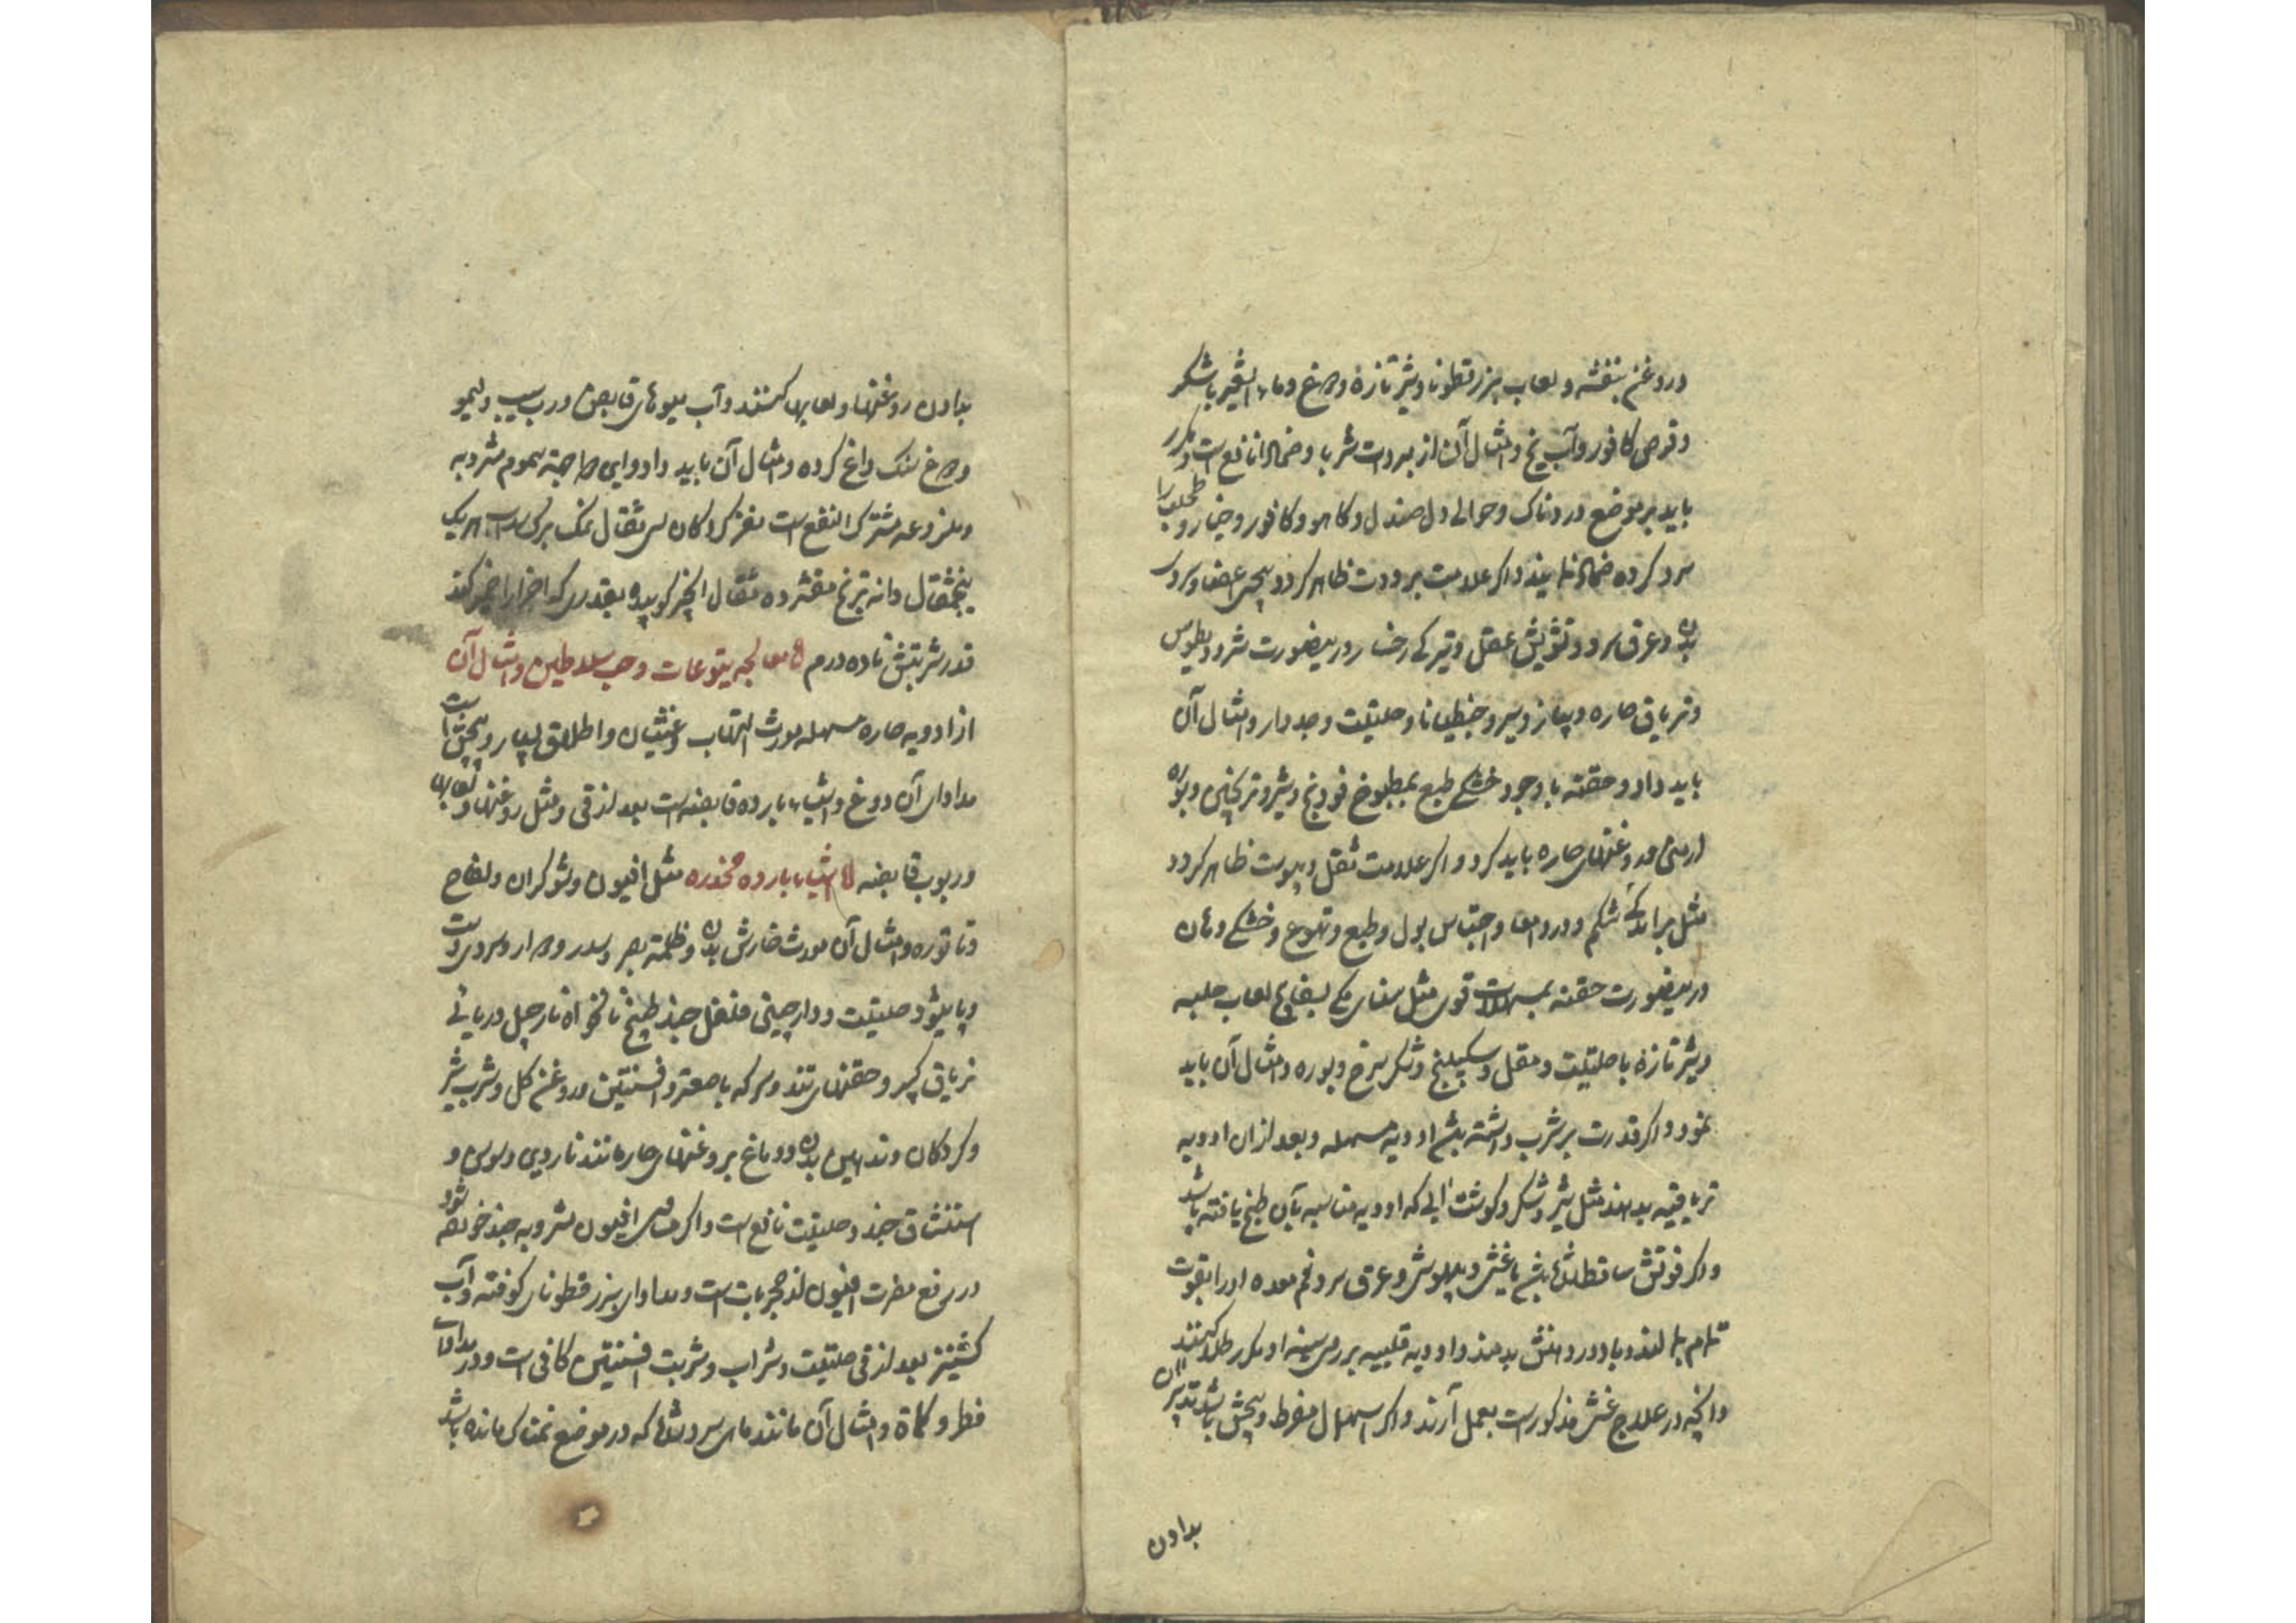 و روغن بنفشه و لعاب بزرقطونا و شیر تازه و دوغ و ماء الشعیر با شکر
و قرص کافور و آب یخ و امثال آن از مبردات شربا و ضمادا نافع است و مکرر
باید بر موضع دردناک و حوالی دل صندل و کاهو و کافور و خیار و طحلب را
سرد کرده ضماد نمایند و اگر علامت برودت ظاهر گردد بیحسی اعضا و سردی
بدن و عرق سرد و تشویش عقل و تیرگی رخسار درینصورت مثرودیطوس
و تریاق حاره و پیاز و سیر و جنطیانا و حلتیت و جدوار و امثال آن
باید داد و حقنه با وجود خشکی طبع بمطبوخ فودنج و شیر و ترنجبین و بوره
ارمنی و روغنهای حاره باید کرد و اگر علامت ثقل و یبوست ظاهر گردد
مثل برآمدگی شکم و درد امعا و احتباس بول و طبع و تهوع و خشکی دهان
درینصورت حقنه بمسهلات قوی مثل سنای مکی بسفایج لعاب حلبه
و شیر تازه با حلتیت و مقل و سکبینج و شکر سرخ و بوره و امثال آن باید
نمود و اگر قدرت بر شرب داشته باشد ادویه مسهله و بعد ازان ادویه
تریاقیه بدهند مثل شیر و شکر و گوشت آبی که ادویه مناسبه بآن طبخ یافته باشد
و اگر قوتش ساقط شده باشد یا غشی و بیهوشی و عرق سرد فم معده او را بقوت
تمام بمالند و بادور دهنش بدمند و ادویه قلبیه بر روی سینه او مکرر طلا کنند
و آنچه در علاج غشی مذکور است بعمل آرند و اگر اسهال مفرط و پیچش باشد تدبیر آن
بدادن
بدادن روغنها و لعابها کنند و آب میوهای قابض و رب سیب و لیمو
و دوغ سنگ داغ کرده و امثال آن باید داد و این دوا جهة سموم مشروبه
و ملذوعه مشترک النفع است مغز گردکان سی مثقال نمک برگ سداب هر یک
پنجمثقال دانه ترنج مقشر ده مثقال انجیر کوبیده بقدری که اجزا را خمیر کند
قدر شربتش تا ده درم معالجه یتوعات و حب سلاطین و امثال آن
از ادویه حاره مسهله مورث التهاب و غثیان و اطلاق بسیار و پیچش است
مداوای آن دوغ و اشیاء بارده قابضه است بعد از قی و مثل روغنها و لعابها
و ربوب قابضه اشیاء بارده مخدره مثل افیون و شوکران و لفاح
و تاتوره و امثال آن مورث خارش بدن و ظلمة بصر و سدر و دوار و سردی است
و پایشود حلتیت و دارچینی فلفل جند طبیخ نانخواه نارجیل دریائی
تریاق کبیر و حقنهای تند و سرکه با صعتر و افسنتین و روغن گل و شرب شیر
و گردکان و تدهین بدن و دماغ بروغنهای حاره مانند ناردین و سوسن و
استنشاق جند و حلتیت نافع است و اگر مساوی افیون مشروبه جند خورده شود
در رفع مضرت افیون از مجربات است و مداوای بزرقطونای کوفته و آب
کشنیز بعد از قی حلتیت و شراب و شربت افسنتین کافی است و در مداوات
فطر و کماة و امثال آن مانند ماهی سرد شده که در موضع نمناک مانده باشد